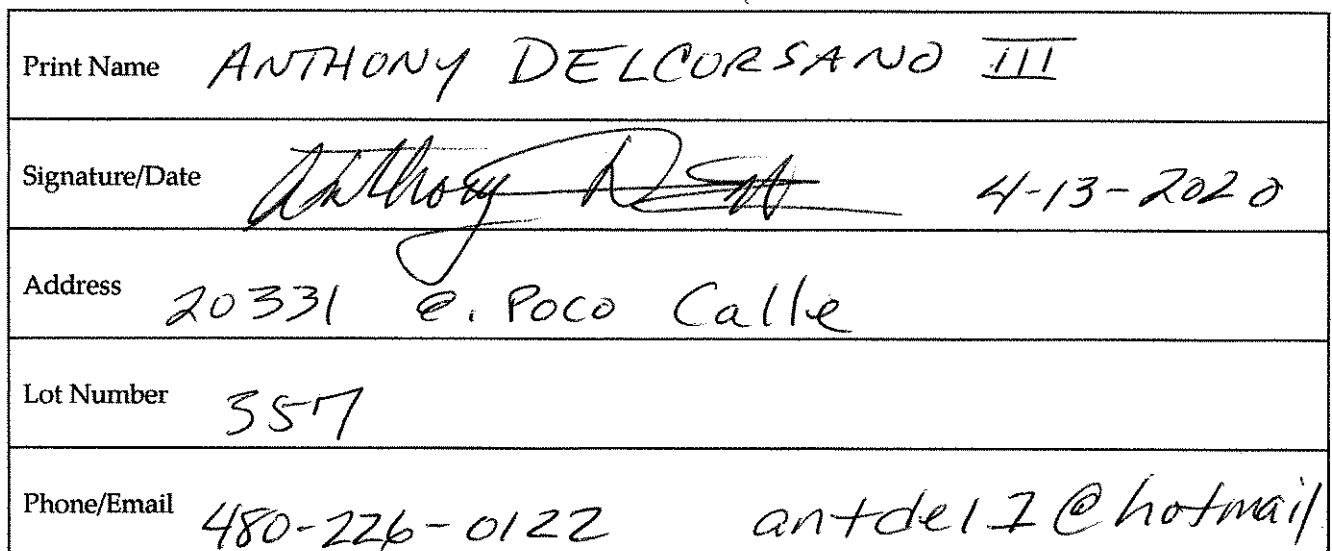 Print Name ANTHONY DELCORSANO III
Signature/Date Anthony 4-13-2020
Address 20331 e. Poco Calle
Lot Number 357
Phone/Email 480-226-0122 antdel1@hotmail